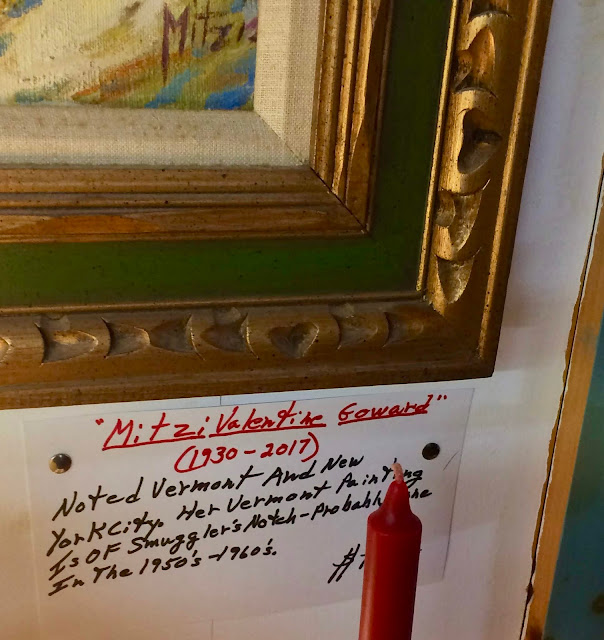 Mitzi
"Mitzi Valentine Goward"
(1930-2017)
Noted Vermont And New
York City. Her Vermont Painting
Is Of Smuggler's Notch-Probably
In The 1950's-1960's.